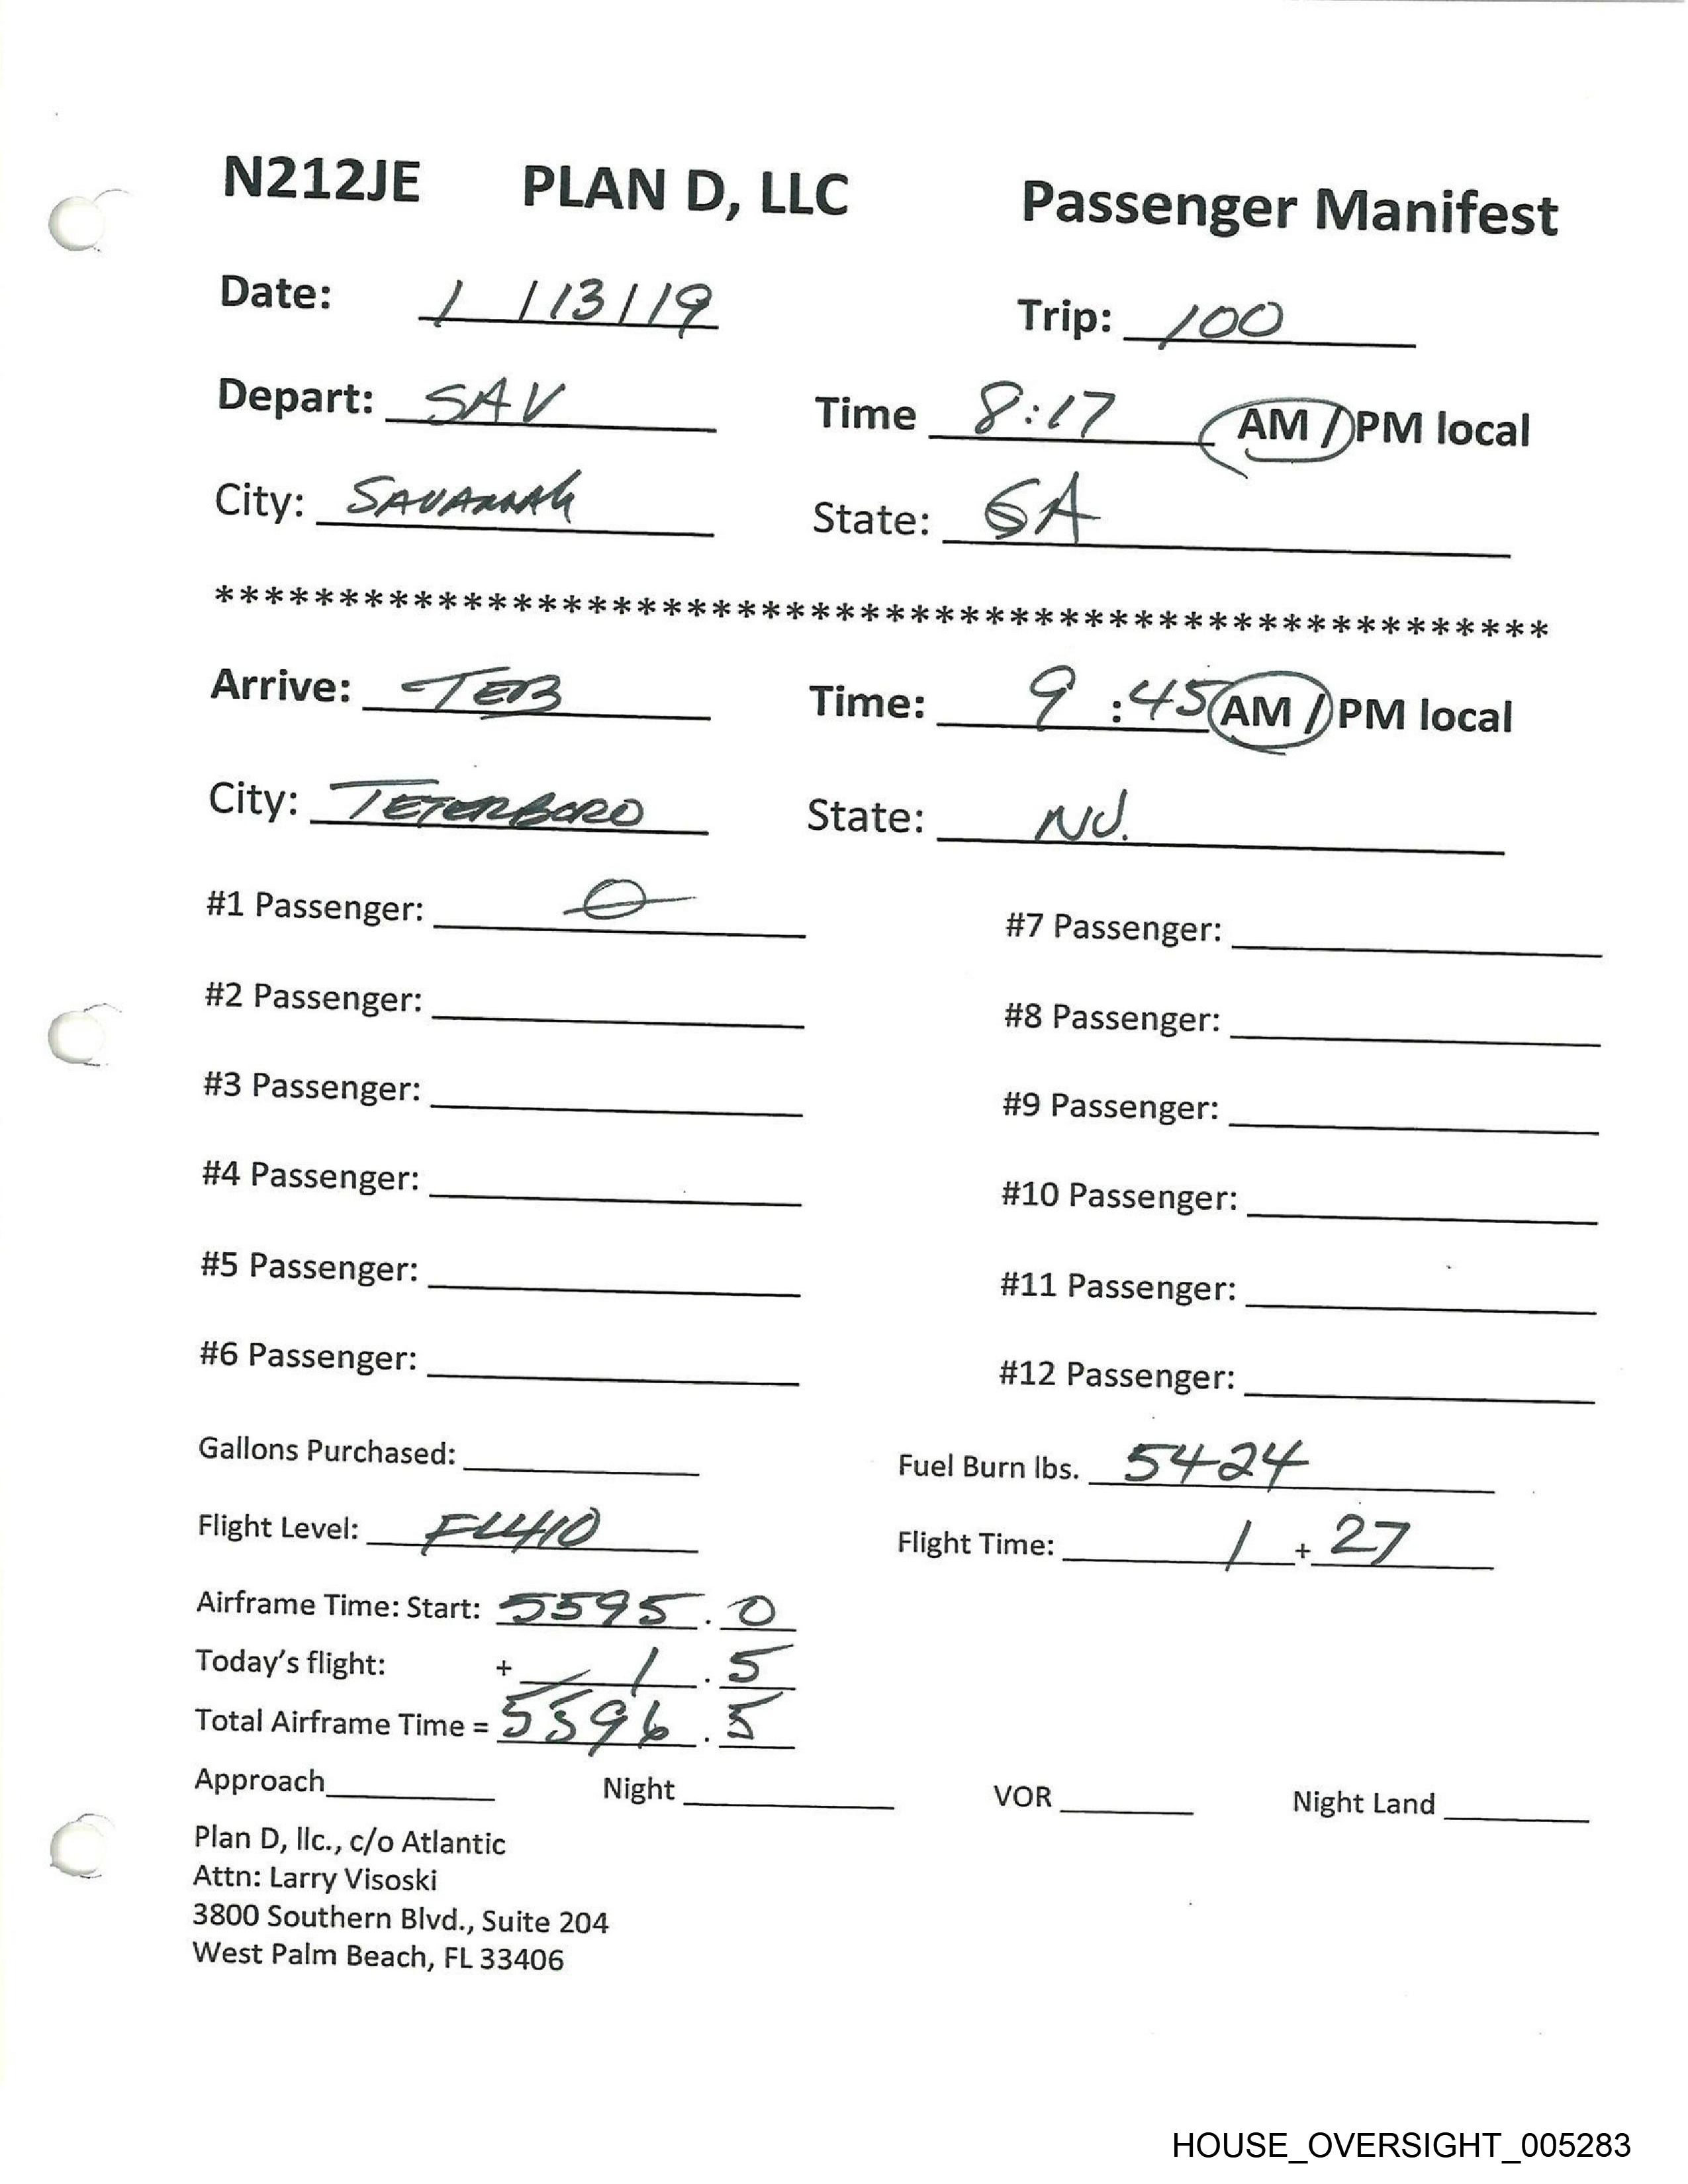 N212JE PLAN D, LLC Passenger Manifest
Date: 1 / 13 / 19 Trip: 100
Depart: SAV Time 8:17 AM / PM local
City: SAVANNAH State: GA
******************************************************
Arrive: TEB Time: 9 :45 AM / PM local
City: TETERBORO State: NJ.
#1 Passenger: 0 #7 Passenger:
#2 Passenger: #8 Passenger:
#3 Passenger: #9 Passenger:
#4 Passenger: #10 Passenger:
#5 Passenger: #11 Passenger:
#6 Passenger: #12 Passenger:
Gallons Purchased: Fuel Burn lbs. 5424
Flight Level: FL410 Flight Time: 1 + 27
Airframe Time: Start: 5595 . 0
Today's flight: + 1 . 5
Total Airframe Time = 5596 . 5
Approach Night VOR Night Land
Plan D, llc., c/o Atlantic
Attn: Larry Visoski
3800 Southern Blvd., Suite 204
West Palm Beach, FL 33406
HOUSE_OVERSIGHT_005283